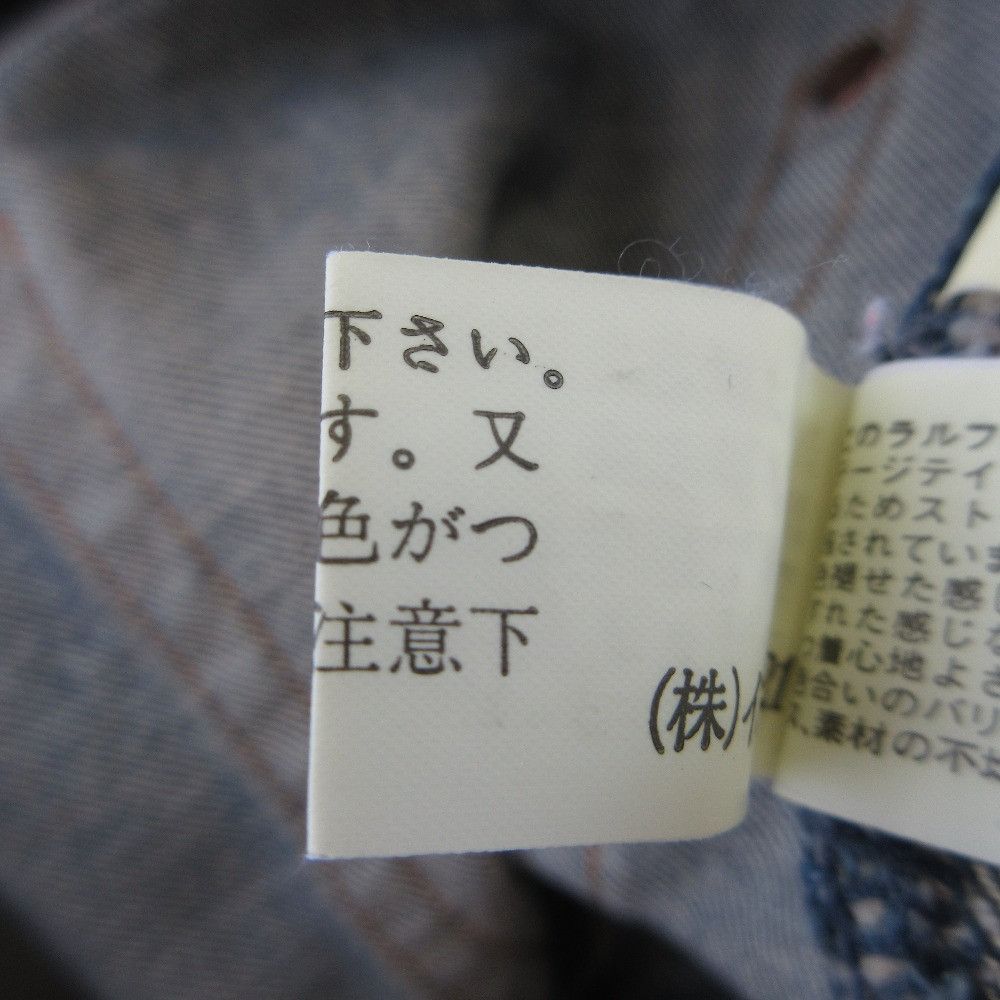 下さい。
す。又
色がつ
注意下
(株)イ
のラルフ
ージテイ
ためスト
されていま
褪せた感じ
れた感じな
着心地よさ
合いのバリ
素材の不均